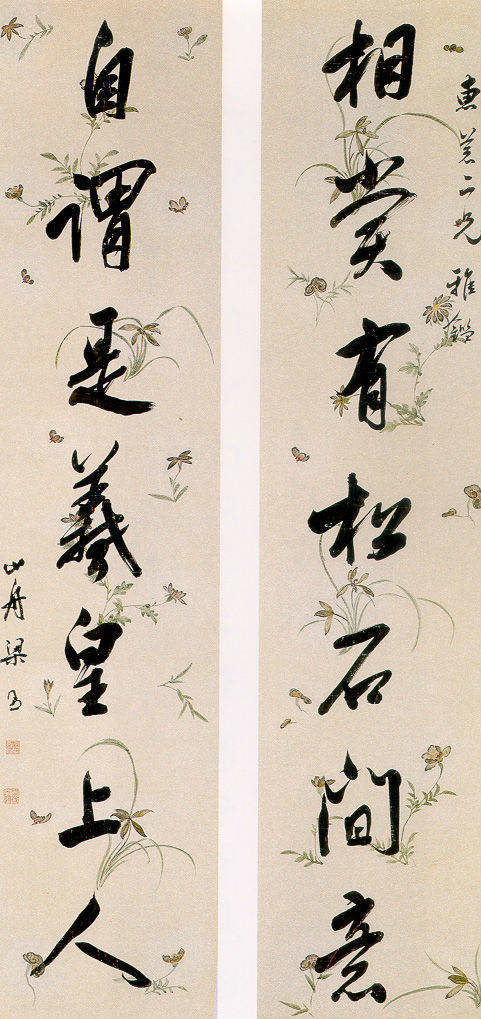 惠菴二兄雅鑑
相賞有松石間意
自謂是羲皇上人
山舟梁